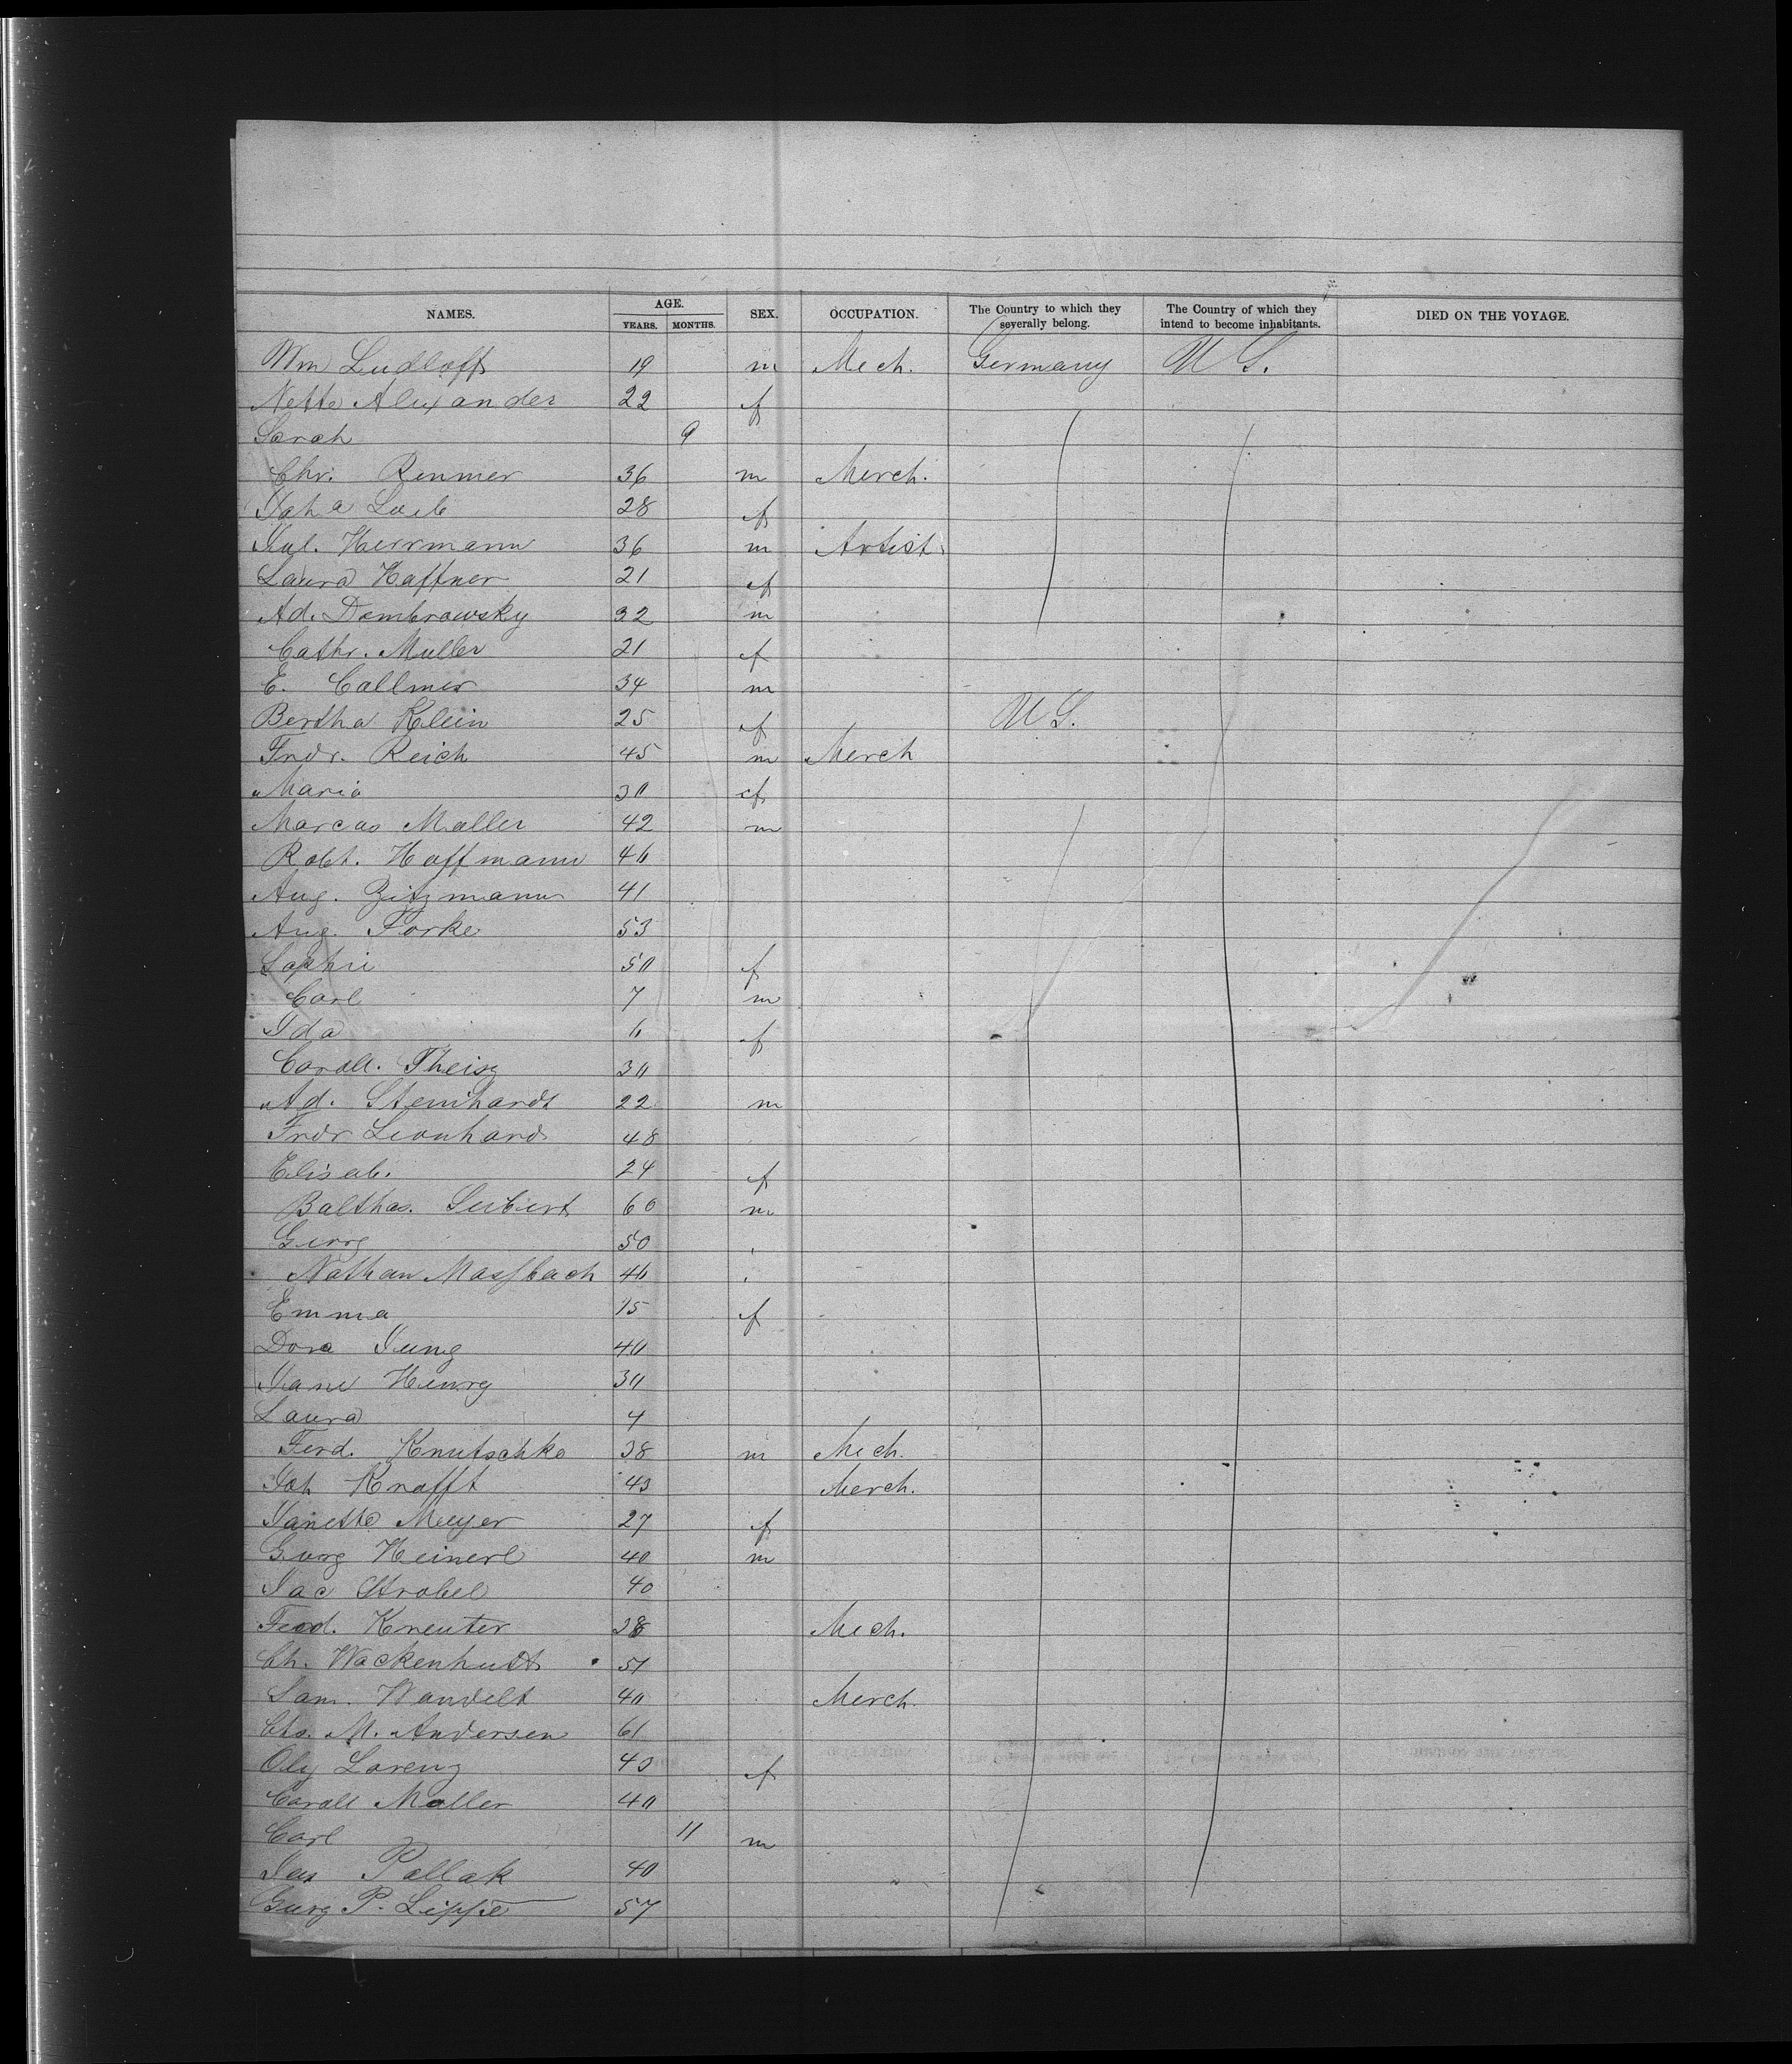 NAMES. AGE. YEARS. MONTHS. SEX. OCCUPATION. The Country to which they severally belong. The Country of which they intend to become inhabitants. DIED ON THE VOYAGE.
Wm Ludloff 19 m Mech. Germany U S.
Nette Alexander 22 f
Sarah 9
Chr. Renmer 36 m Merch.
Joh a Loeb 28 f
Jul. Herrmann 36 m Artist
Laura Haffner 21 f
Ad. Dombrowsky 32 m
Cathr. Muller 21 f
E. Collmer 34 m
Bertha Klein 25 f U S.
Fredr. Reich 45 m Merch
Maria 30 f
Marcus Moller 42 m
Robt. Hoffmann 40
Aug. Zitzmann 41
Aug. Forke 53
Sophie 50 f
Carl 7 m
Ida 6 f
Caroll. Theisz 30
Ad. Steinhardt 22 m
Fredr Leonhard 48
Elisab. 24 f
Balthas. Seibert 60 m
Georg 50
Nathan Massbach 40
Emma 15 f
Dora Jung 40
Jane Henry 30
Laura 4
Ferd. Knutschke 38 m Mech.
Joh Krafft 43 Merch.
Janette Meyer 27 f
Georg Heinerl 40 m
Jac Strobel 40
Ferd. Kreuter 28 Mech.
Ch. Wackenhudt 51
Sam. Wandelt 40 Merch.
Chs. M. Andersen 61
Oly Lorenz 43 f
Caroll Moller 40
Carl 11 m
Pollak 40
Georg P. Lippe 57